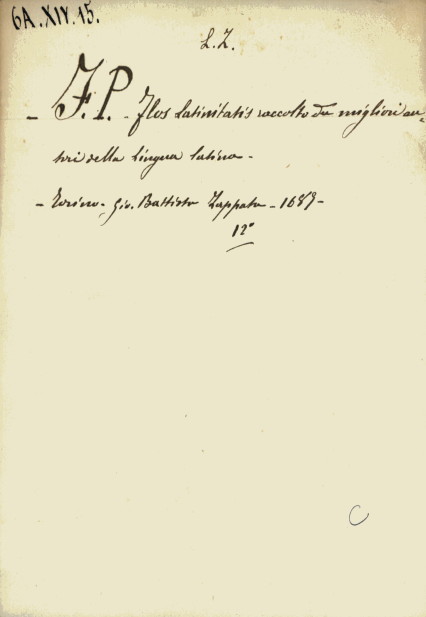 6A.XIV.15.
L.Z.
- F.P. - Flos Latinitatis raccolto da migliori au-
tori della Lingua latina -
- Torino - Gio. Battista Zappata - 1689 -
12°
C